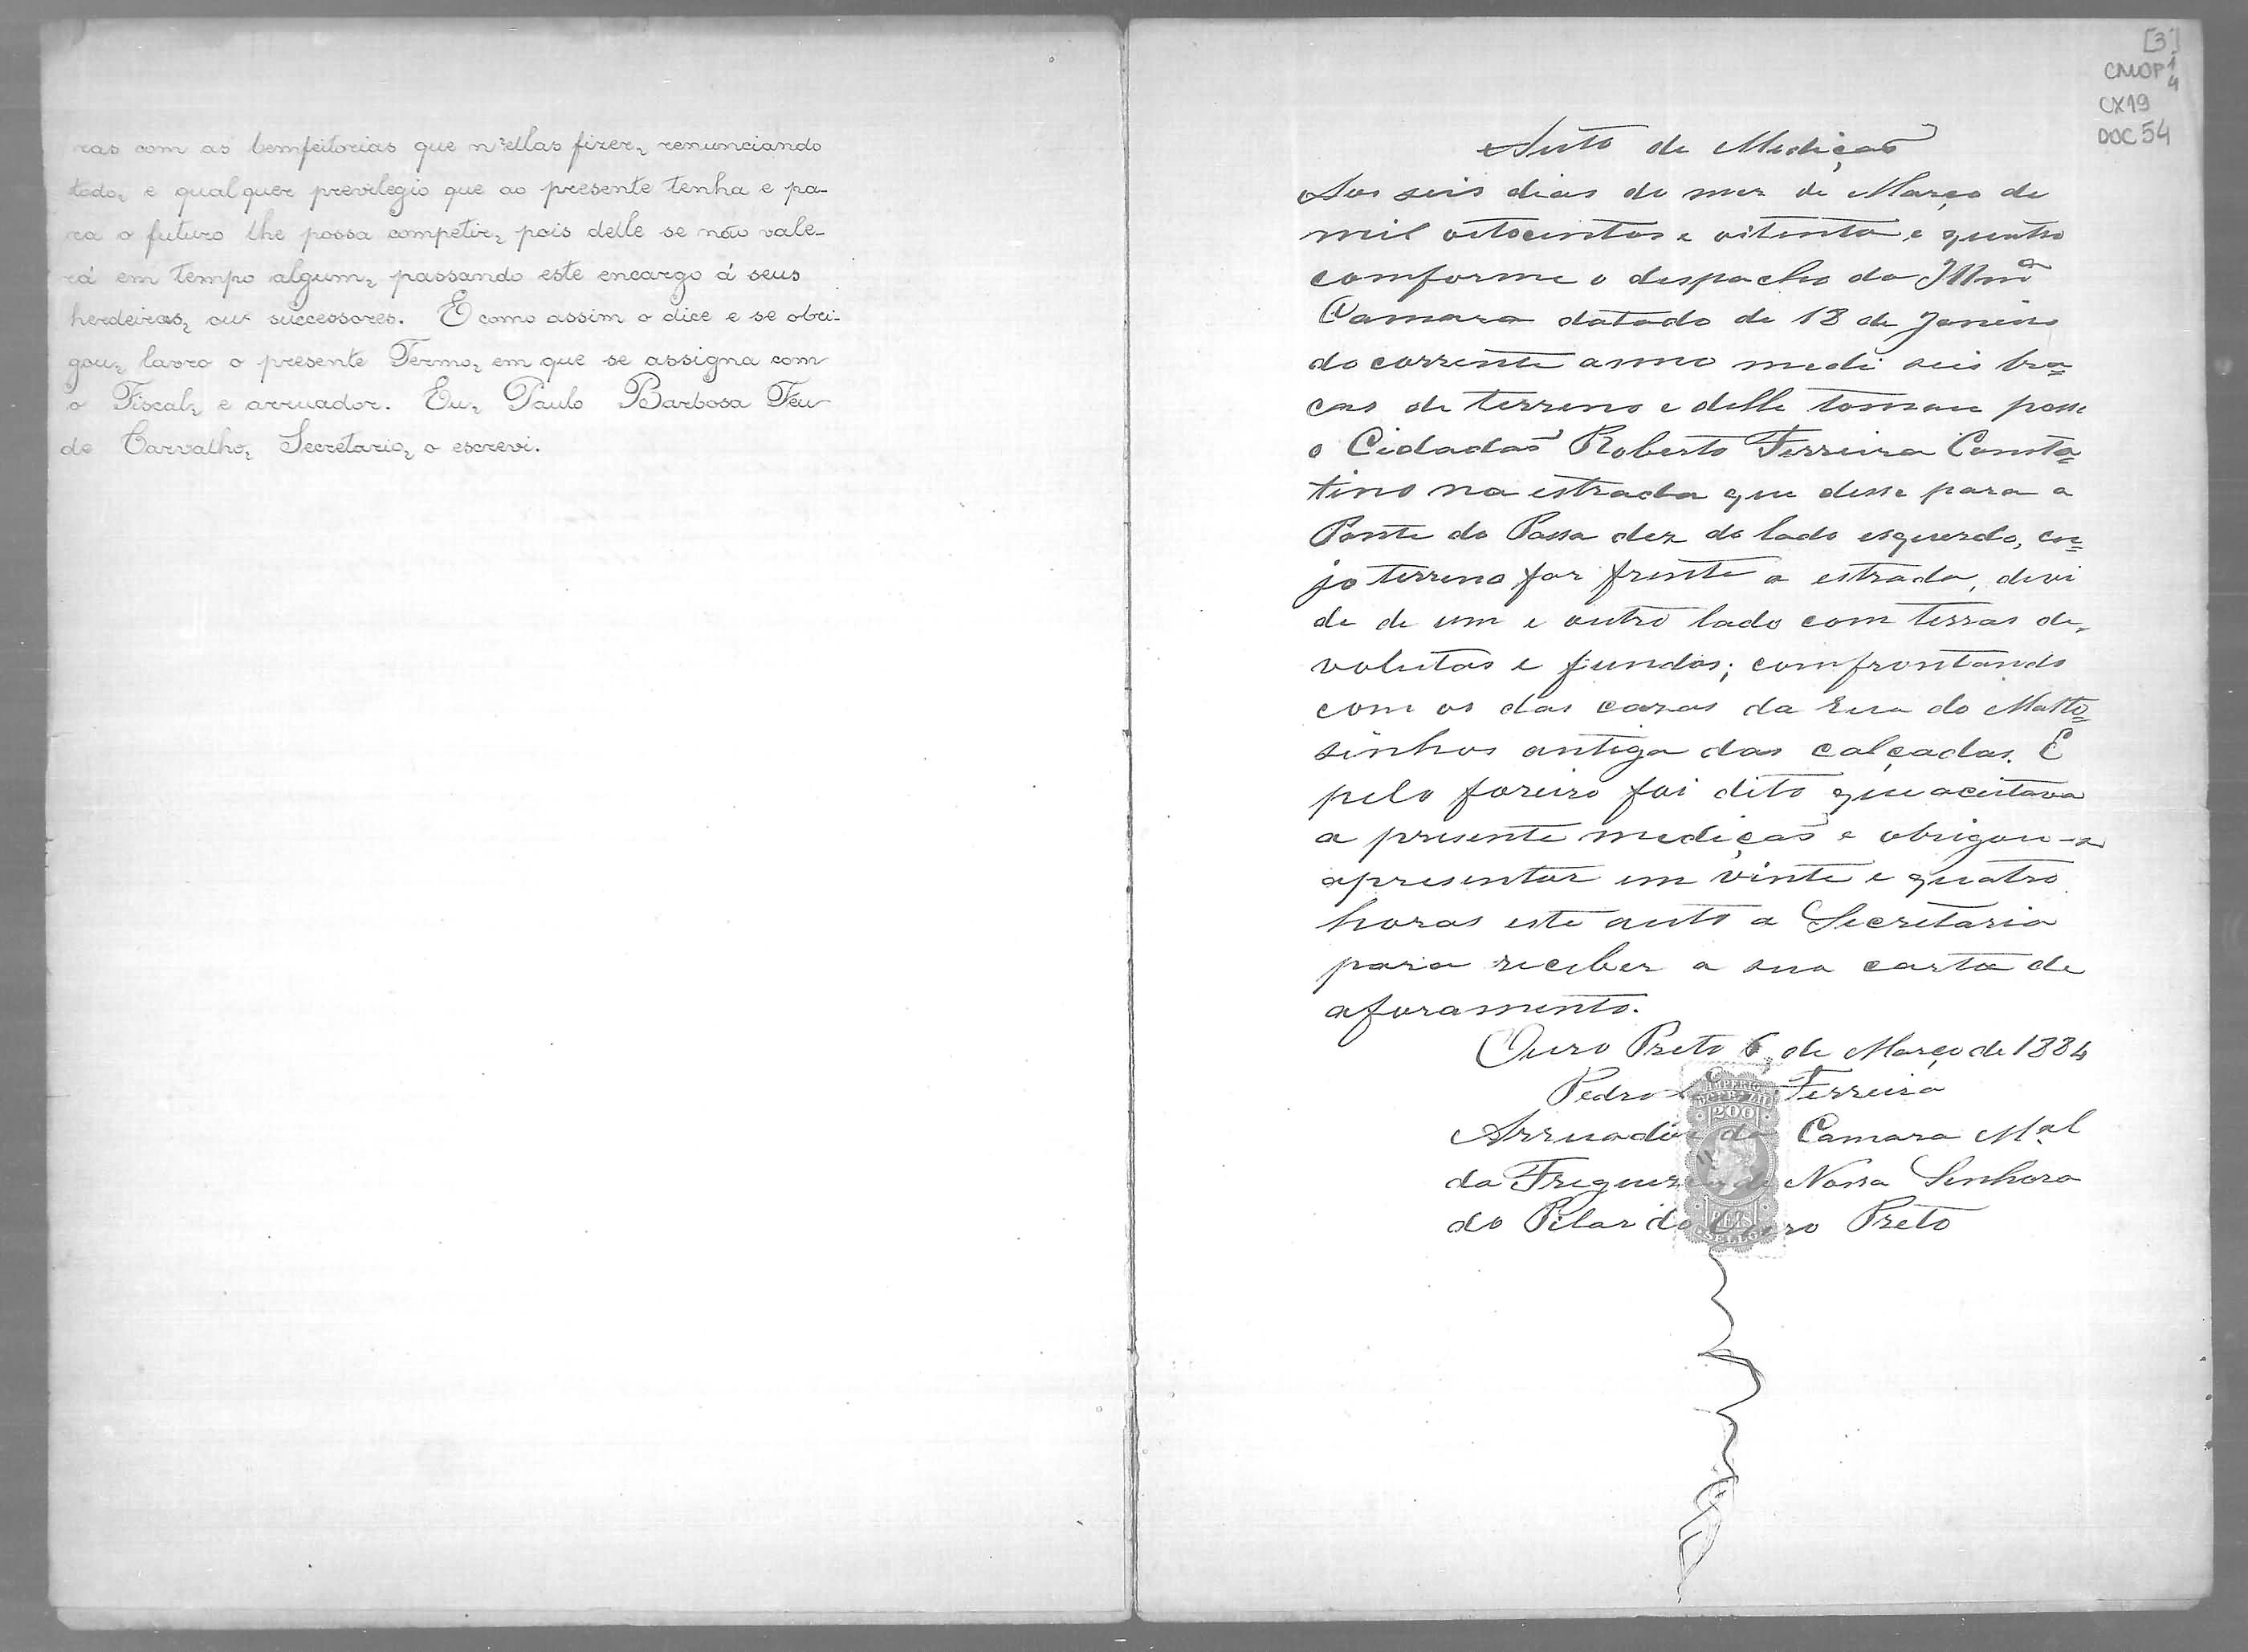 ras com as bemfeitorias que n'ellas fizer, renunciando
todo, e qualquer previlegio que ao presente tenha e pa-
ra o futuro lhe possa competir, pois delle se não vale-
rá em tempo algum, passando este encargo á seus
herdeiros, ou successores. E como assim o dice e se obri-
gou, lavro o presente Termo, em que se assigna com
o Fiscal, e arruador. Eu, Paulo Barbosa Feu
de Carvalho, Secretario, o escrevi.
[3]
CMOP 1
4
CX19
DOC 54
Auto de Medição
Aos seis dias do mez de Março de
mil oitocentos e oitenta e quatro
comforme o despacho da Illmª
Camara datado de 18 de Janeiro
do corrente anno medi seis bra=
ças de terreno e delle tomou posse
o Cidadão Roberto Ferreira Consta=
tino na estrada que desse para a
Ponte do Passa dez do lado esquerdo, cu=
jo terreno faz frente a estrada, devi
de de um e outro lado com terras de-
volutas e fundos; comfrontando
com os das cazas da Rua do Matto=
sinhos antiga das calçadas. E
pelo foreiro foi dito que aceitava
a presente medição e obrigou-se
apresentar em vinte e quatro
horas este auto a Secretaria
para receber a sua carta de
aforamento.
Ouro Preto 6 de Março de 1884
Pedro Ferreira
Arruador da Camara Mal
da Freguezia de Nossa Senhora
do Pilar do Ouro Preto
IMPERIO
DO BRAZIL
200
REIS
SELLO